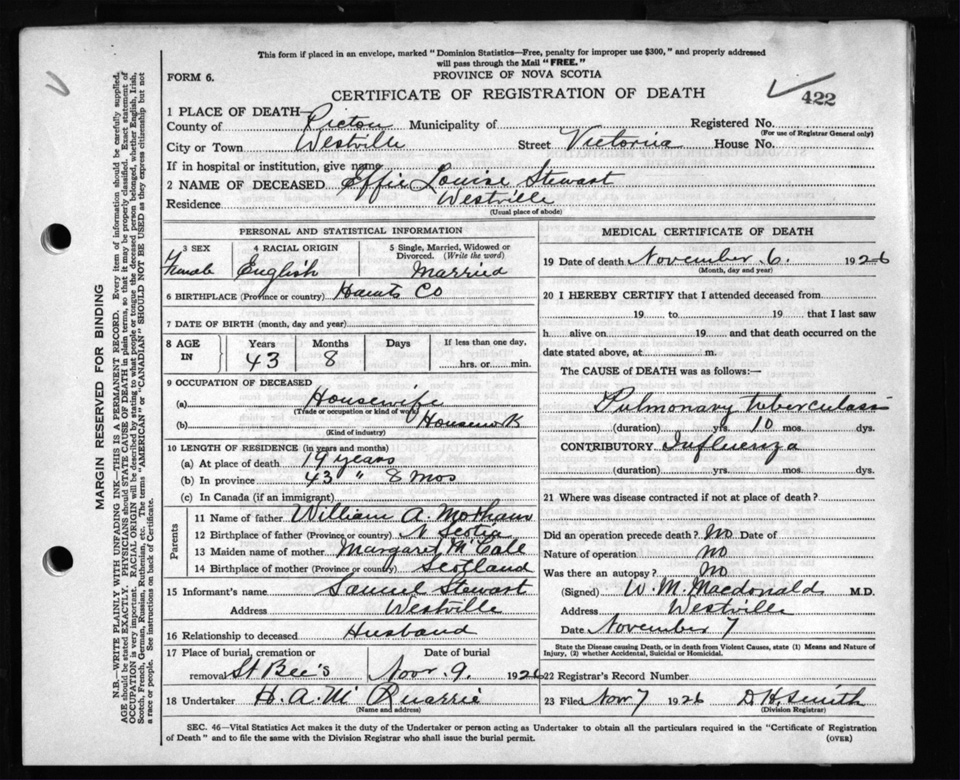 This form if placed in an envelope, marked "Dominion Statistics—Free, penalty for improper use $300," and properly addressed
will pass through the Mail "FREE."
FORM 6.
PROVINCE OF NOVA SCOTIA
CERTIFICATE OF REGISTRATION OF DEATH
422
1 PLACE OF DEATH—
County of Pictou Municipality of Registered No.
(For use of Registrar General only)
City or Town Westville Street Victoria House No.
If in hospital or institution, give name
2 NAME OF DECEASED Effie Louise Stewart
Residence Westville
(Usual place of abode)
PERSONAL AND STATISTICAL INFORMATION
3 SEX 4 RACIAL ORIGIN 5 Single, Married, Widowed or
Divorced. (Write the word)
Female English Married
6 BIRTHPLACE (Province or country) Hants Co
7 DATE OF BIRTH (month, day and year)
8 AGE IN Years Months Days If less than one day,
43 8 hrs. or min.
9 OCCUPATION OF DECEASED
(a) Housewife
(Trade or occupation or kind of work)
(b) Housework
(Kind of industry)
10 LENGTH OF RESIDENCE (in years and months)
(a) At place of death 19 years
(b) In province 43 " 8 mos
(c) In Canada (if an immigrant)
Parents
11 Name of father William A.
12 Birthplace of father (Province or country) N Scotia
13 Maiden name of mother Margaret McCall
14 Birthplace of mother (Province or country) Scotland
15 Informant's name Samuel Stewart
Address Westville
16 Relationship to deceased Husband
17 Place of burial, cremation or Date of burial
removal St Bee's Nov. 9. 1926
18 Undertaker H. A. McQuarrie
(Name and address)
MEDICAL CERTIFICATE OF DEATH
19 Date of death November 6. 1926
(Month, day and year)
20 I HEREBY CERTIFY that I attended deceased from
19 to 19 that I last saw
h alive on 19 and that death occurred on the
date stated above, at m.
The CAUSE of DEATH was as follows:—
Pulmonary tuberculosis
(duration) yrs. 10 mos. dys.
CONTRIBUTORY Influenza
(duration) yrs. mos. dys.
21 Where was disease contracted if not at place of death?
Did an operation precede death? No Date of
Nature of operation no
Was there an autopsy? No
(Signed) W. M. Macdonald M.D.
Address Westville
Date November 7
State the Disease causing Death, or in death from Violent Causes, state (1) Means and Nature of
Injury, (2) whether Accidental, Suicidal or Homicidal.
22 Registrar's Record Number
23 Filed Nov 7 1926 D H. Smith
(Division Registrar)
SEC. 46—Vital Statistics Act makes it the duty of the Undertaker or person acting as Undertaker to obtain all the particulars required in the "Certificate of Registration
of Death" and to file the same with the Division Registrar who shall issue the burial permit. (OVER)
MARGIN RESERVED FOR BINDING
N.B.—WRITE PLAINLY WITH UNFADING INK—THIS IS A PERMANENT RECORD. Every item of information should be carefully supplied.
AGE should be stated EXACTLY. PHYSICIANS should STATE CAUSE OF DEATH in plain terms, so that it may be properly classified. Exact statement of
OCCUPATION is very important. RACIAL ORIGIN will be described by stating to what people or tongue the deceased person belonged, whether English, Irish,
Scotch, French, German, Russian, Ruthenian, etc. The terms "AMERICAN" or "CANADIAN" SHOULD NOT BE USED as they express citizenship but not
a race or people. See instructions on back of Certificate.